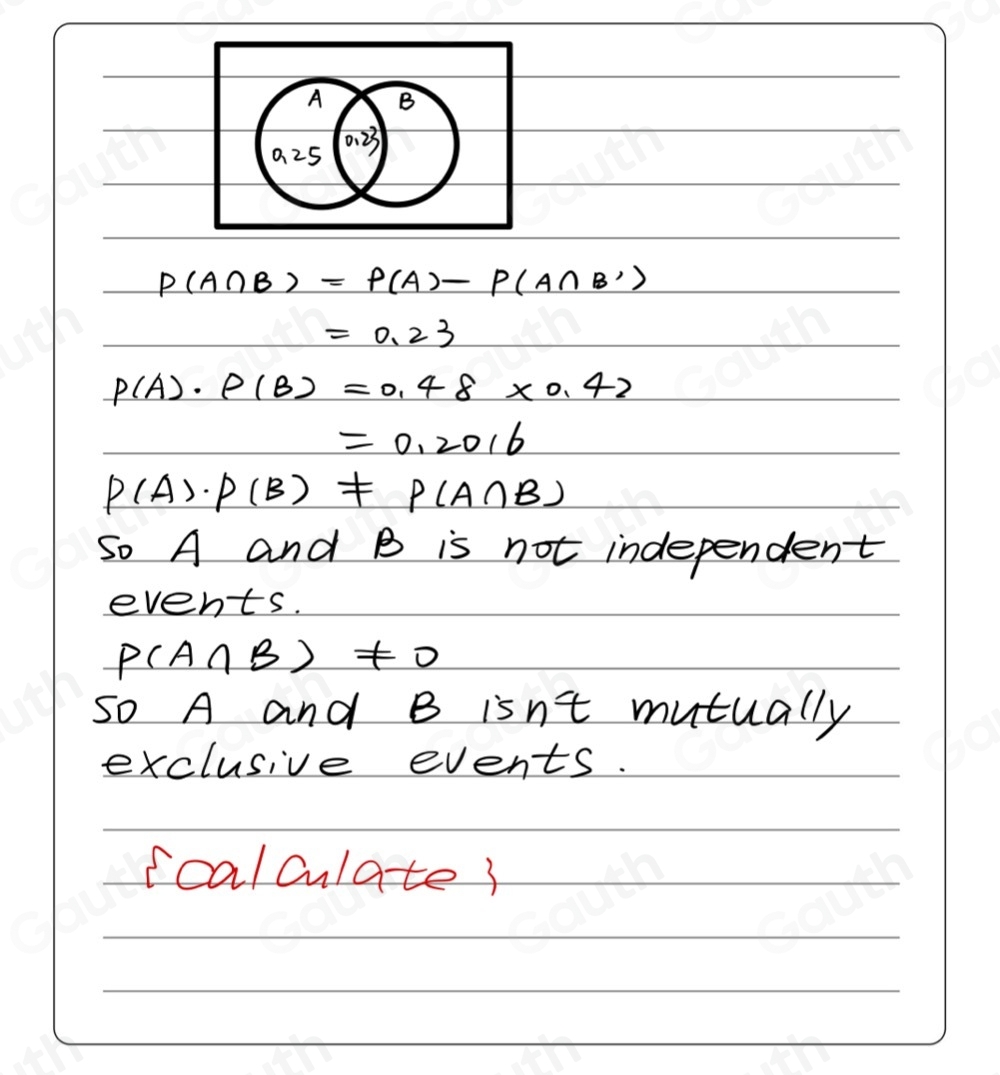 A B
0.25 0.23
P(A∩B) = P(A)- P(A∩B')
= 0.23
P(A)·P(B) = 0.48 × 0.42
= 0.2016
P(A)·P(B) ≠ P(A∩B)
So A and B is not independent
events.
P(A∩B) ≠ 0
So A and B isn't mutually
exclusive events.
{calculate}
Gauth